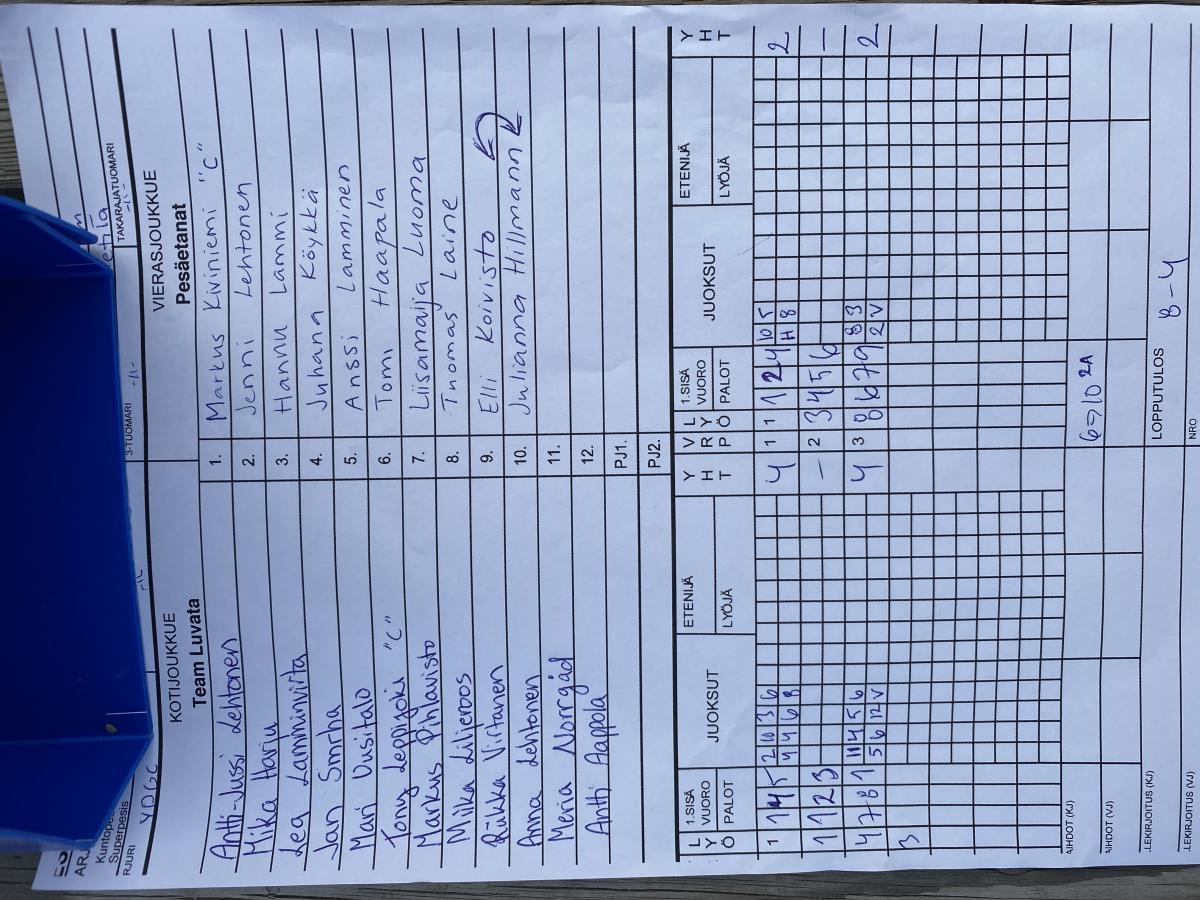 Kuntopesis
Superpesis
RJURI YPGC
3-TUOMARI -11-
TAKARAJATUOMARI -11-
KOTIJOUKKUE VIERASJOUKKUE
Team Luvata Pesäetanat
Antti-Jussi Lehtonen 1. Markus Kiviniemi "C"
Mika Harju 2. Jenni Lehtonen
Lea Lamminvirta 3. Hannu Lammi
Jan Smrha 4. Juhana Köykkä
Mari Uusitalo 5. Anssi Lamminen
Tony Leppijoki "C" 6. Tomi Haapala
Markus Pihlavisto 7. Liisamaija Luoma
Miika Liljeroos 8. Tuomas Laine
Riikka Virtanen 9. Elli Koivisto
Anna Lehtonen 10. Julianna Hillmann
Meria Norrgåd 11.
Antti Aappola 12.
PJ1.
PJ2.
LYÖ 1.SISÄ VUORO PALOT JUOKSUT ETENIJÄ LYÖJÄ YHT VRP LYÖ 1.SISÄ VUORO PALOT JUOKSUT ETENIJÄ LYÖJÄ YHT
1 1 4 5 2 10 3 6 4 1 1 1 2 4 10 5 2
4 4 6 8 H 8
1 1 2 3 – 2 3 4 5 6 –
4 7 8 1 11 4 5 6 4 3 8 6 7 9 8 3 2
5 6 12 V 2 V
3
AIHDOT (KJ) 6=>10 2A
AIHDOT (VJ)
LOPPUTULOS 8-4
LEKIRJOITUS (KJ)
LEKIRJOITUS (VJ) NRO